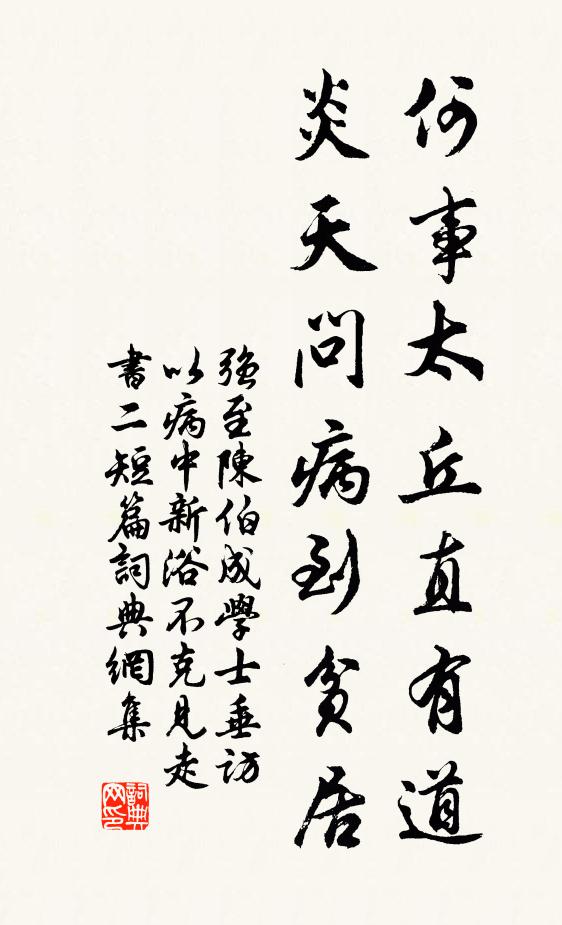 何事太丘直有道
炎天問病到貧居
強至陳伯成學士垂訪
以病中新浴不克見走
書二短篇詞典網集
詞典网印